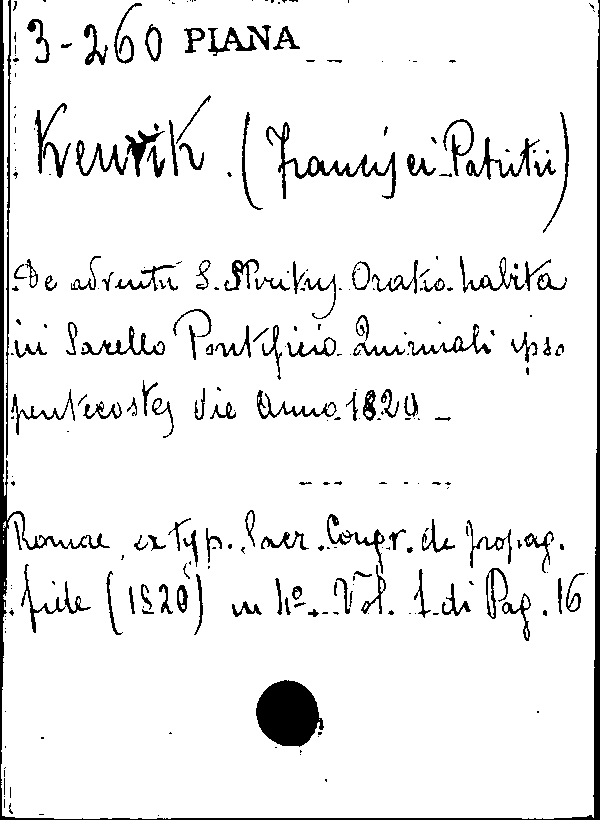 3-260 PIANA
Kenrik. (Francisci Patritii)
De adventu S. Spiritus Oratio habita
in Sacello Pontificio Quirinali ipso
pentecostes die anno 1820 -
Romae, ex typ. Sacr. Congr. de propag.
fide (1820) in 4º. Vol. 1 di Pag. 16